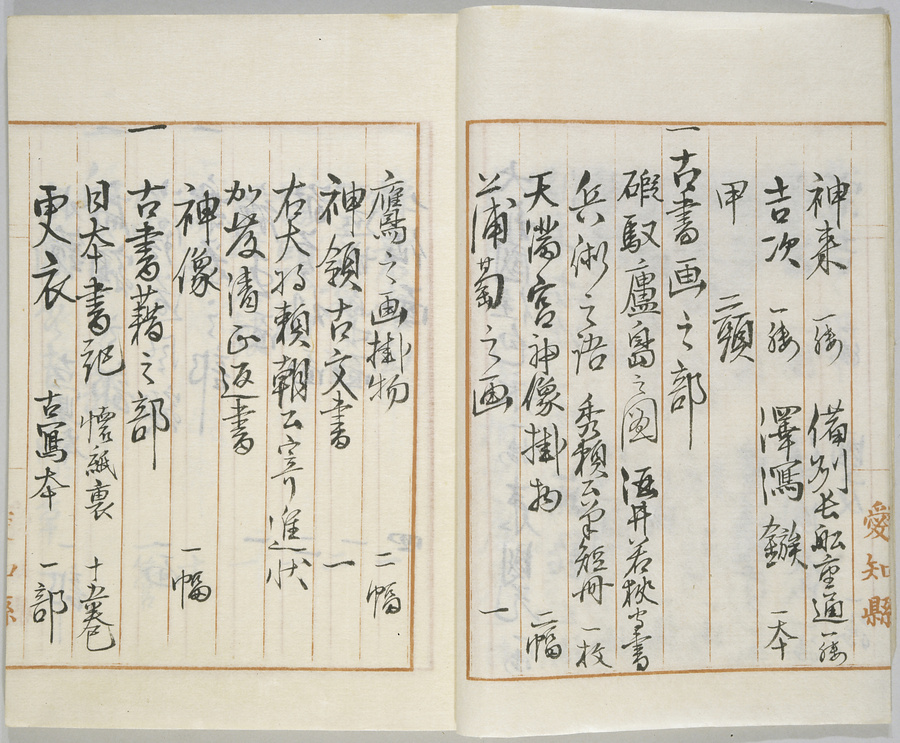 神来 一腰 備前長船重通一腰
吉次 一腰 澤瀉鏃 一本
甲 二頭
一古書画之部
硯馭廬島之図 酒井若狭守書
兵術之語 秀頼公筆短冊 一枚
天満宮神像掛物 二幅
蒲萄之画 一
鷹之画掛物 二幅
神領古文書 一
右大将頼朝公寄進状
加藤清正返書
神像 一幅
一古書籍之部
日本書記 懐紙裏 十五巻
更衣 古写本 一部
愛知縣